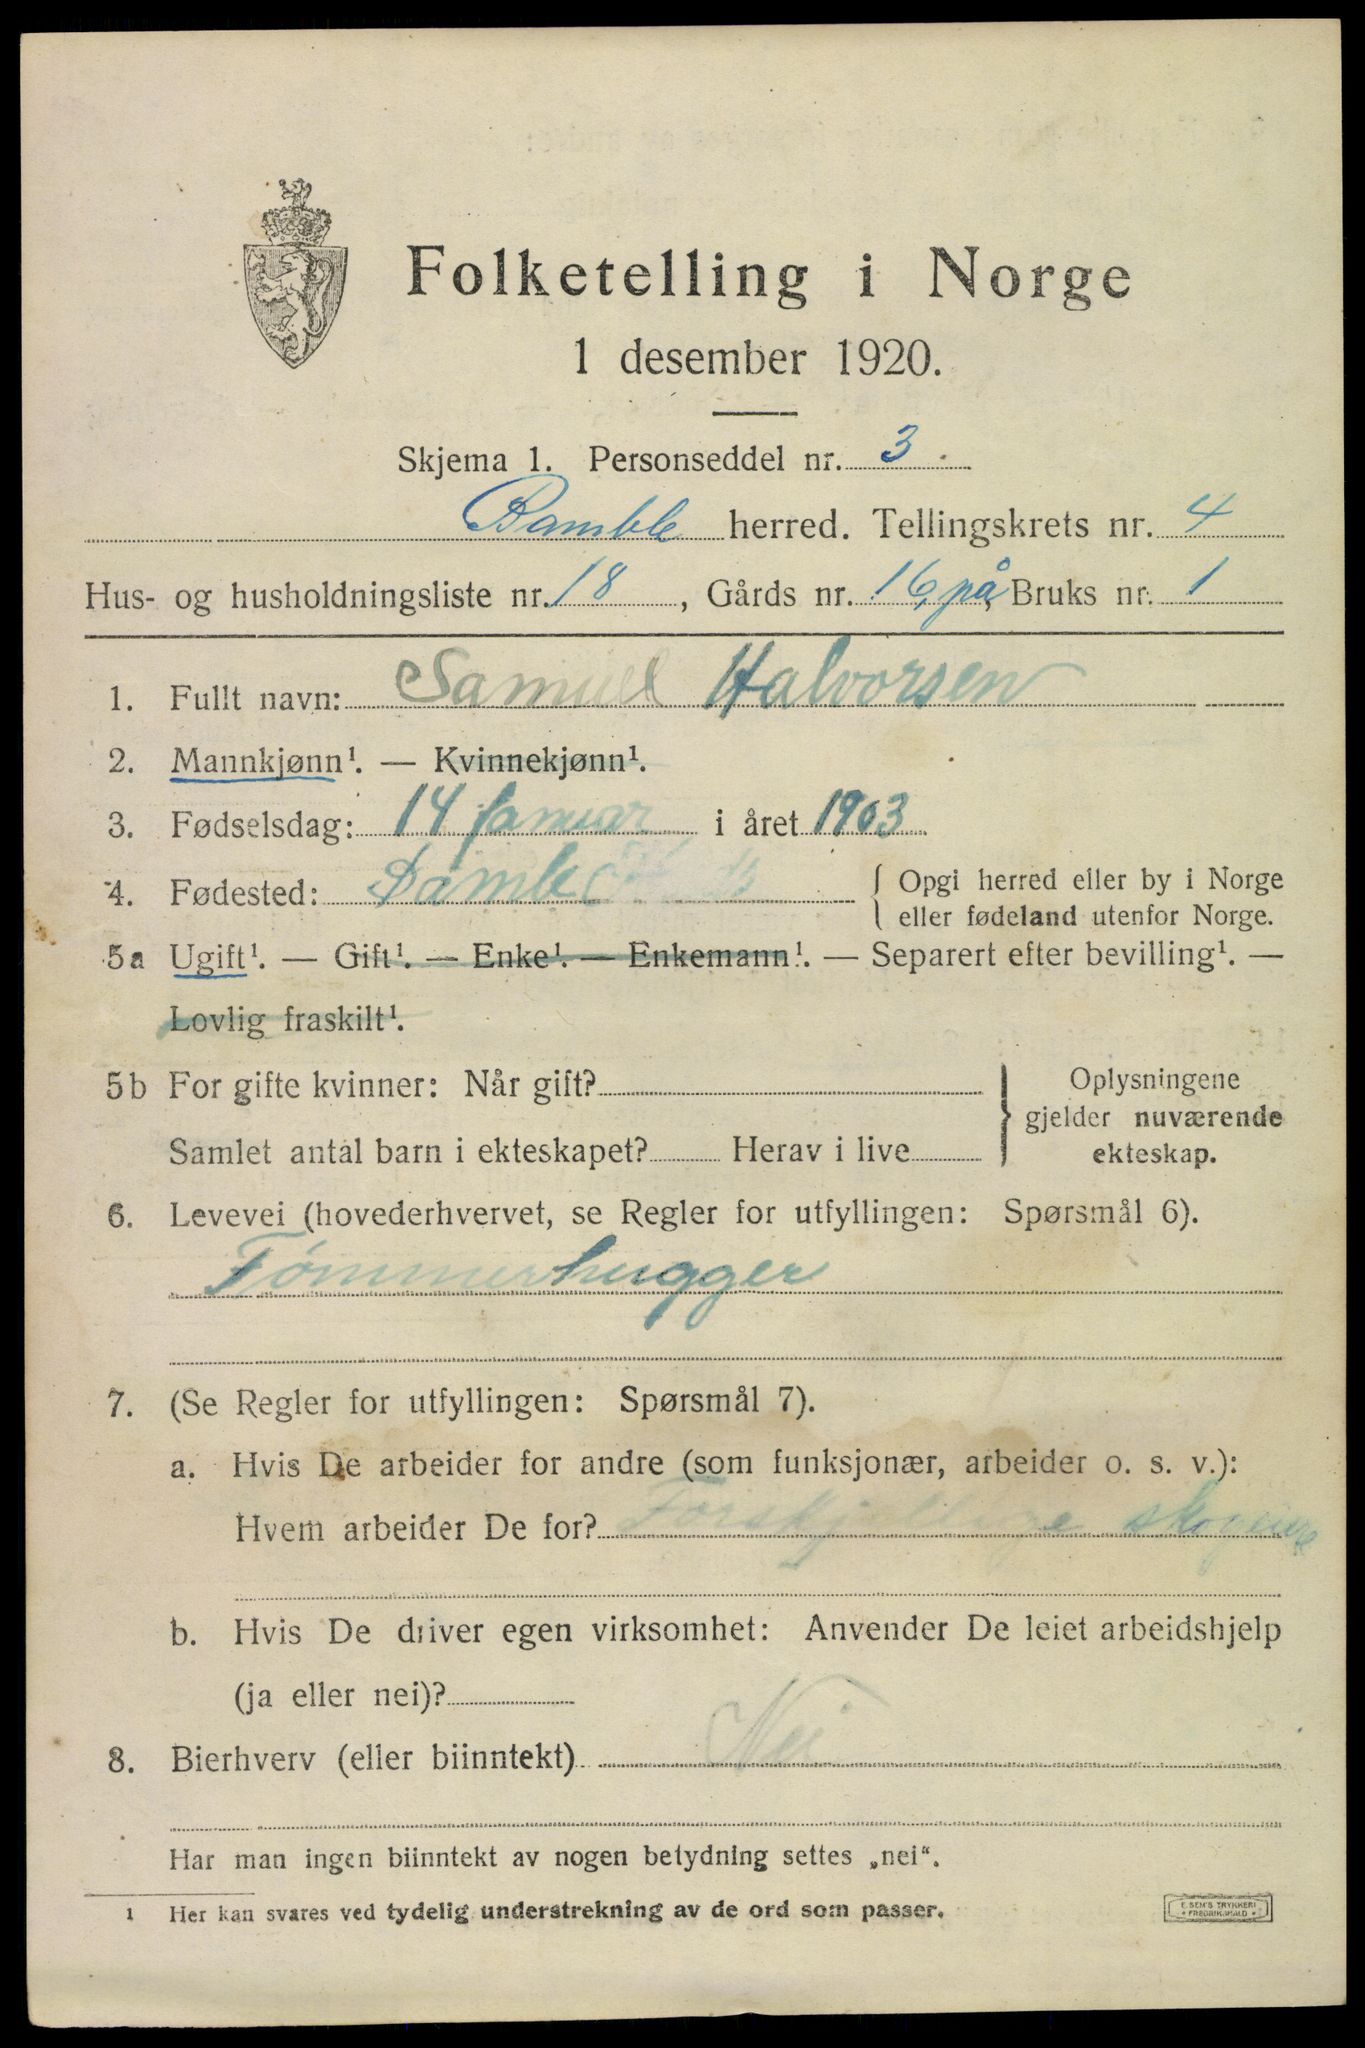 Folketelling i Norge
1 desember 1920.
Skjema 1. Personseddel nr. 3.
Bamble herred. Tellingskrets nr. 4
Hus- og husholdningsliste nr. 18, Gårds nr. 16, på, Bruks nr. 1
1. Fullt navn: Samuel Halvorsen
2. Mannkjønn¹. — Kvinnekjønn¹.
3. Fødselsdag: 14 januar i året 1903
4. Fødested: Bamble { Opgi herred eller by i Norge
eller fødeland utenfor Norge.
5a Ugift¹. — Gift¹. — Enke¹. — Enkemann¹. — Separert efter bevilling¹. —
Lovlig fraskilt¹.
5b For gifte kvinner: Når gift?
Samlet antal barn i ekteskapet? Herav i live
} Oplysningene
gjelder nuværende
ekteskap.
6. Levevei (hovederhvervet, se Regler for utfyllingen: Spørsmål 6).
Tømmerhugger
7. (Se Regler for utfyllingen: Spørsmål 7).
a. Hvis De arbeider for andre (som funksjonær, arbeider o. s. v.):
Hvem arbeider De for? Forskjellige skogeiere
b. Hvis De driver egen virksomhet: Anvender De leiet arbeidshjelp
(ja eller nei)?
8. Bierhverv (eller biinntekt) Nei
Har man ingen biinntekt av nogen betydning settes „nei“.
1 Her kan svares ved tydelig understrekning av de ord som passer.
E. SEM'S TRYKKERI
FREDRIKSHALD